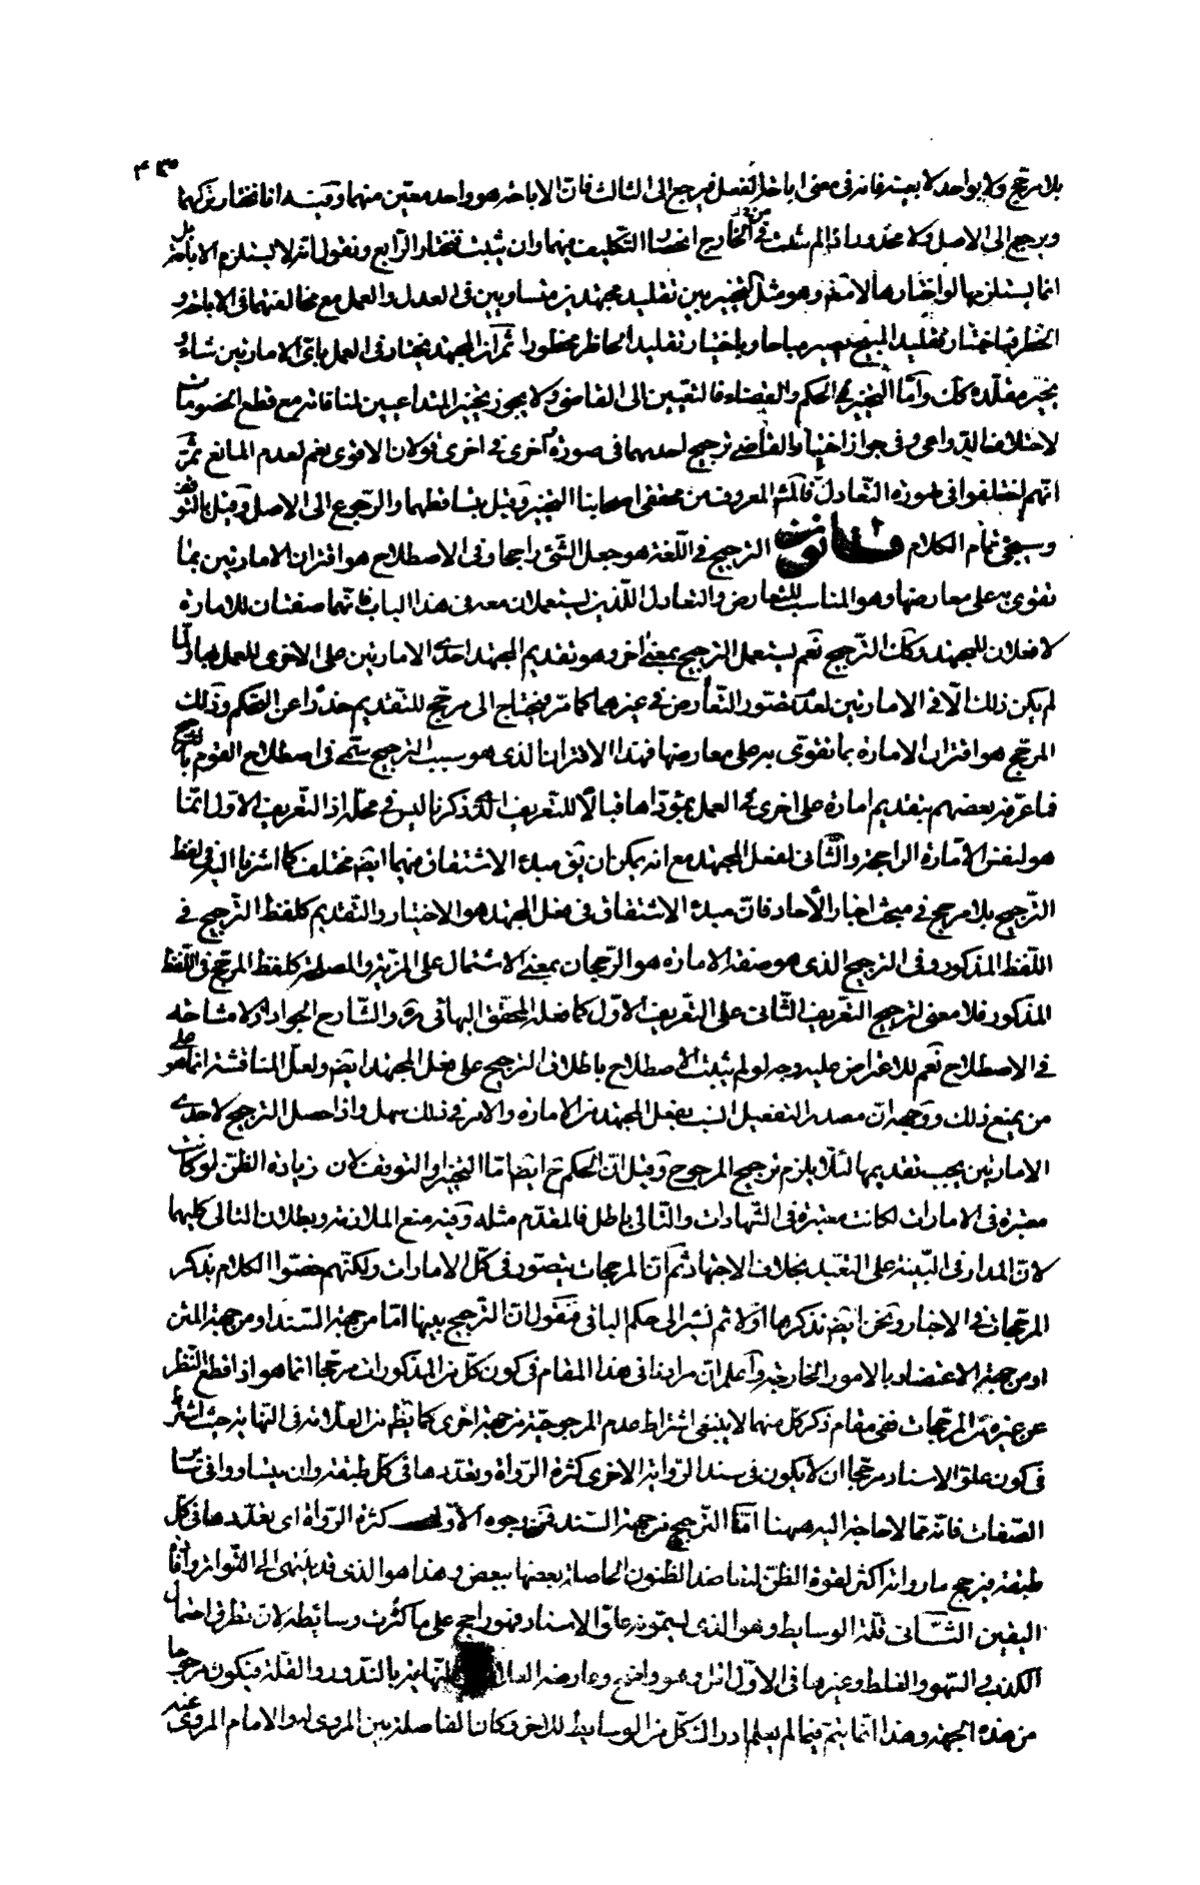 ٤٣٥
بلا مرجح ولا بواحد لا بعينه فانه فى معنى اباحة الفعل فيرجع الى الثالث فان الاباحة هو واحد معين منهما وفيه انا نختار تركهما
ويرجع الى الاصل ولا محذور اذا لم يثبت من الخارج انحصار التكليف فيهما وان يثبت فنختار الرابع ونقول انه لا يستلزم الاباحة بل
انما يستلزمها لو اختارها لامنعه وهو مثل التخيير بين تقليد مجتهدين متساويين فى العدل والعمل مع مخالفتهما فى الاباحة و
الحظر فباختيار تقليد المبيح يصير مباحا وباختيار تقليد الحاظر محظورا ثم ان المجتهد يختار فى العمل باى الامارتين شاء و
يخير مقلده كك واما التخيير فى الحكم والقضاء فالتعيين الى القاضى ولا يجوز تخيير المتداعيين لمنافاته مع قطع الخصومات
لاختلاف الدواعى وفى جواز اختيار القاضى ترجيح احدهما فى صورة واخرى فى اخرى قولان الاقوى نعم لعدم المانع ثم
انهم اختلفوا فى صورة التعادل فالمشهور المعروف من محققى اصحابنا التخيير وقيل بتساقطهما والرجوع الى الاصل وقيل بالتوقف
وسيجئ تمام الكلام قانون الترجيح فى اللغة هو جعل الشئ راجحا وفى الاصطلاح هو اقتران الامارتين بما
تقوى به على معارضها وهو المناسب للتعارض والتعادل اللذين يستعملان معه فى هذا الباب فانهما صفتان للامارة
لا فعلان للمجتهد وكك الترجيح نعم يستعمل الترجيح بمعنى اخر وهو تقديم المجتهد احدى الامارتين على الاخرى للعمل بها ولما
لم يكن ذلك الا فى الامارتين لعدم تصور التعارض فى غيرهما كما مر فيحتاج الى مرجح للتقديم حذرا عن التحكم وذلك
المرجح هو اقتران الامارة بما تقوى به على معارضها فهذا الاقتران الذى هو سبب الترجيح سمى فى اصطلاح القوم بالترجيح
فما عرفه بعضهم بتقديم امارة على اخرى فى العمل بمؤداها قبالا للتعريف الذى ذكرنا ليس فى محله اذ التعريف الاول انما
هو لنفس الامارة الراجحة والثانى لفعل المجتهد مع انه يمكن ان يق مبدء الاشتقاق فيهما ايضا مختلف كما اشرنا اليه فى لفظ
الترجيح بلا مرجح فى مبحث اخبار الآحاد فان مبدء الاشتقاق فى فعل المجتهد هو الاختيار والتقديم كلفظ الترجيح فى
اللفظ المذكور وفى الترجيح الذى هو صفة الامارة هو الرجحان بمعنى الاشتمال على المزية والمصلحة كلفظ المرجح فى اللفظ
المذكور فلا معنى لترجيح التعريف الثانى على التعريف الاول كما فعله المحقق البهائى ره والشارح الجواد اذ لا مشاحة
فى الاصطلاح نعم للاعتراض عليه وجه لو لم يثبت الاصطلاح باطلاق الترجيح على فعل المجتهد ايضا ولعل المناقشة انما هو على
من يمنع ذلك ووجهه ان مصدر التفعيل انسب بفعل المجتهد من الامارة والامر فى ذلك سهل واذا حصل الترجيح لاحدى
الامارتين يجب تقديمها لئلا يلزم ترجيح المرجوح وقيل ان الحكم ح ايضا اما التخيير او التوقف لان زيادة الظن لو كانت
معتبرة فى الامارات لكانت معتبرة فى الشهادات والتالى باطل فالمقدم مثله وفيه منع الملازمة وبطلان التالى كليهما
لان المدار فى البينة على التعبد بخلاف الاجتهاد ثم ان المرجحات يتصور فى كل الامارات ولكنهم خصوا الكلام بذكر
المرجحات فى الاخبار ونحن ايضا نذكرها اولا ثم نشير الى حكم الباقى فنقول ان الترجيح بينها اما من جهة السند او من جهة المتن
او من جهة الاعتضاد بالامور الخارجة واعلم ان مرادنا فى هذا المقام فى كون كل من المذكورات مرجحا انما هو اذا قطع النظر
عن غيره من المرجحات ففى مقام ذكر كل منهما لا ينبغى اشتراط عدم المرجوحية من جهة اخرى كما يظهر من العلامة فى النهاية حيث اشترط
فى كون علو الاسناد مرجحا ان لا يكون فى سند الرواية الاخرى كثرة الرواة وتعددها فى كل طبقة وان يتساووا فى سائر
الصفات فانه مما لا حاجة اليه ههنا اما الترجيح من جهة السند فمن وجوه الاول كثرة الرواة اى تعددها فى كل
طبقة فيرجح ما رواته اكثر لقوة الظن لتعاضد الظنون الحاصلة بعضها ببعض وهذا هو الذى قد ينتهى الى التواتر وافادة
اليقين الثانى قلة الوسايط وهو الذى يسمونه علو الاسناد فهو راجح على ما كثرت وسايطه لان تطرق احتمال
الكذب والسهو والغلط وغيرها فى الاول اقل وهو واضح وعارضه العلامة النهاية بالندور والقلة فيكون مرجوحا
من هذه الجهة وهذا انما يتم فيما لم يعلم ادراك كل من الوسايط للاخر وكان الفاصلة بين المروى له والامام المروى عنه